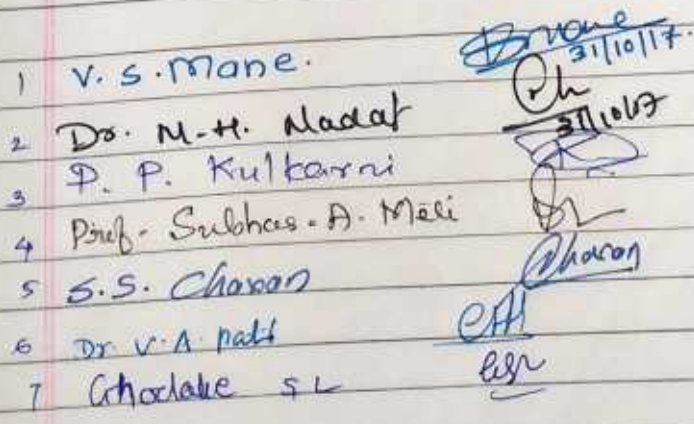 1 V. S. Mane. 31/10/17.
2 Dr. M. H. Nadaf 31/10/17
3 P. P. Kulkarni
4 Prof. Subhas. A. Mali
5 S.S. Chavan Chavan
6 Dr V. A. Patil
7 Ghodake S L